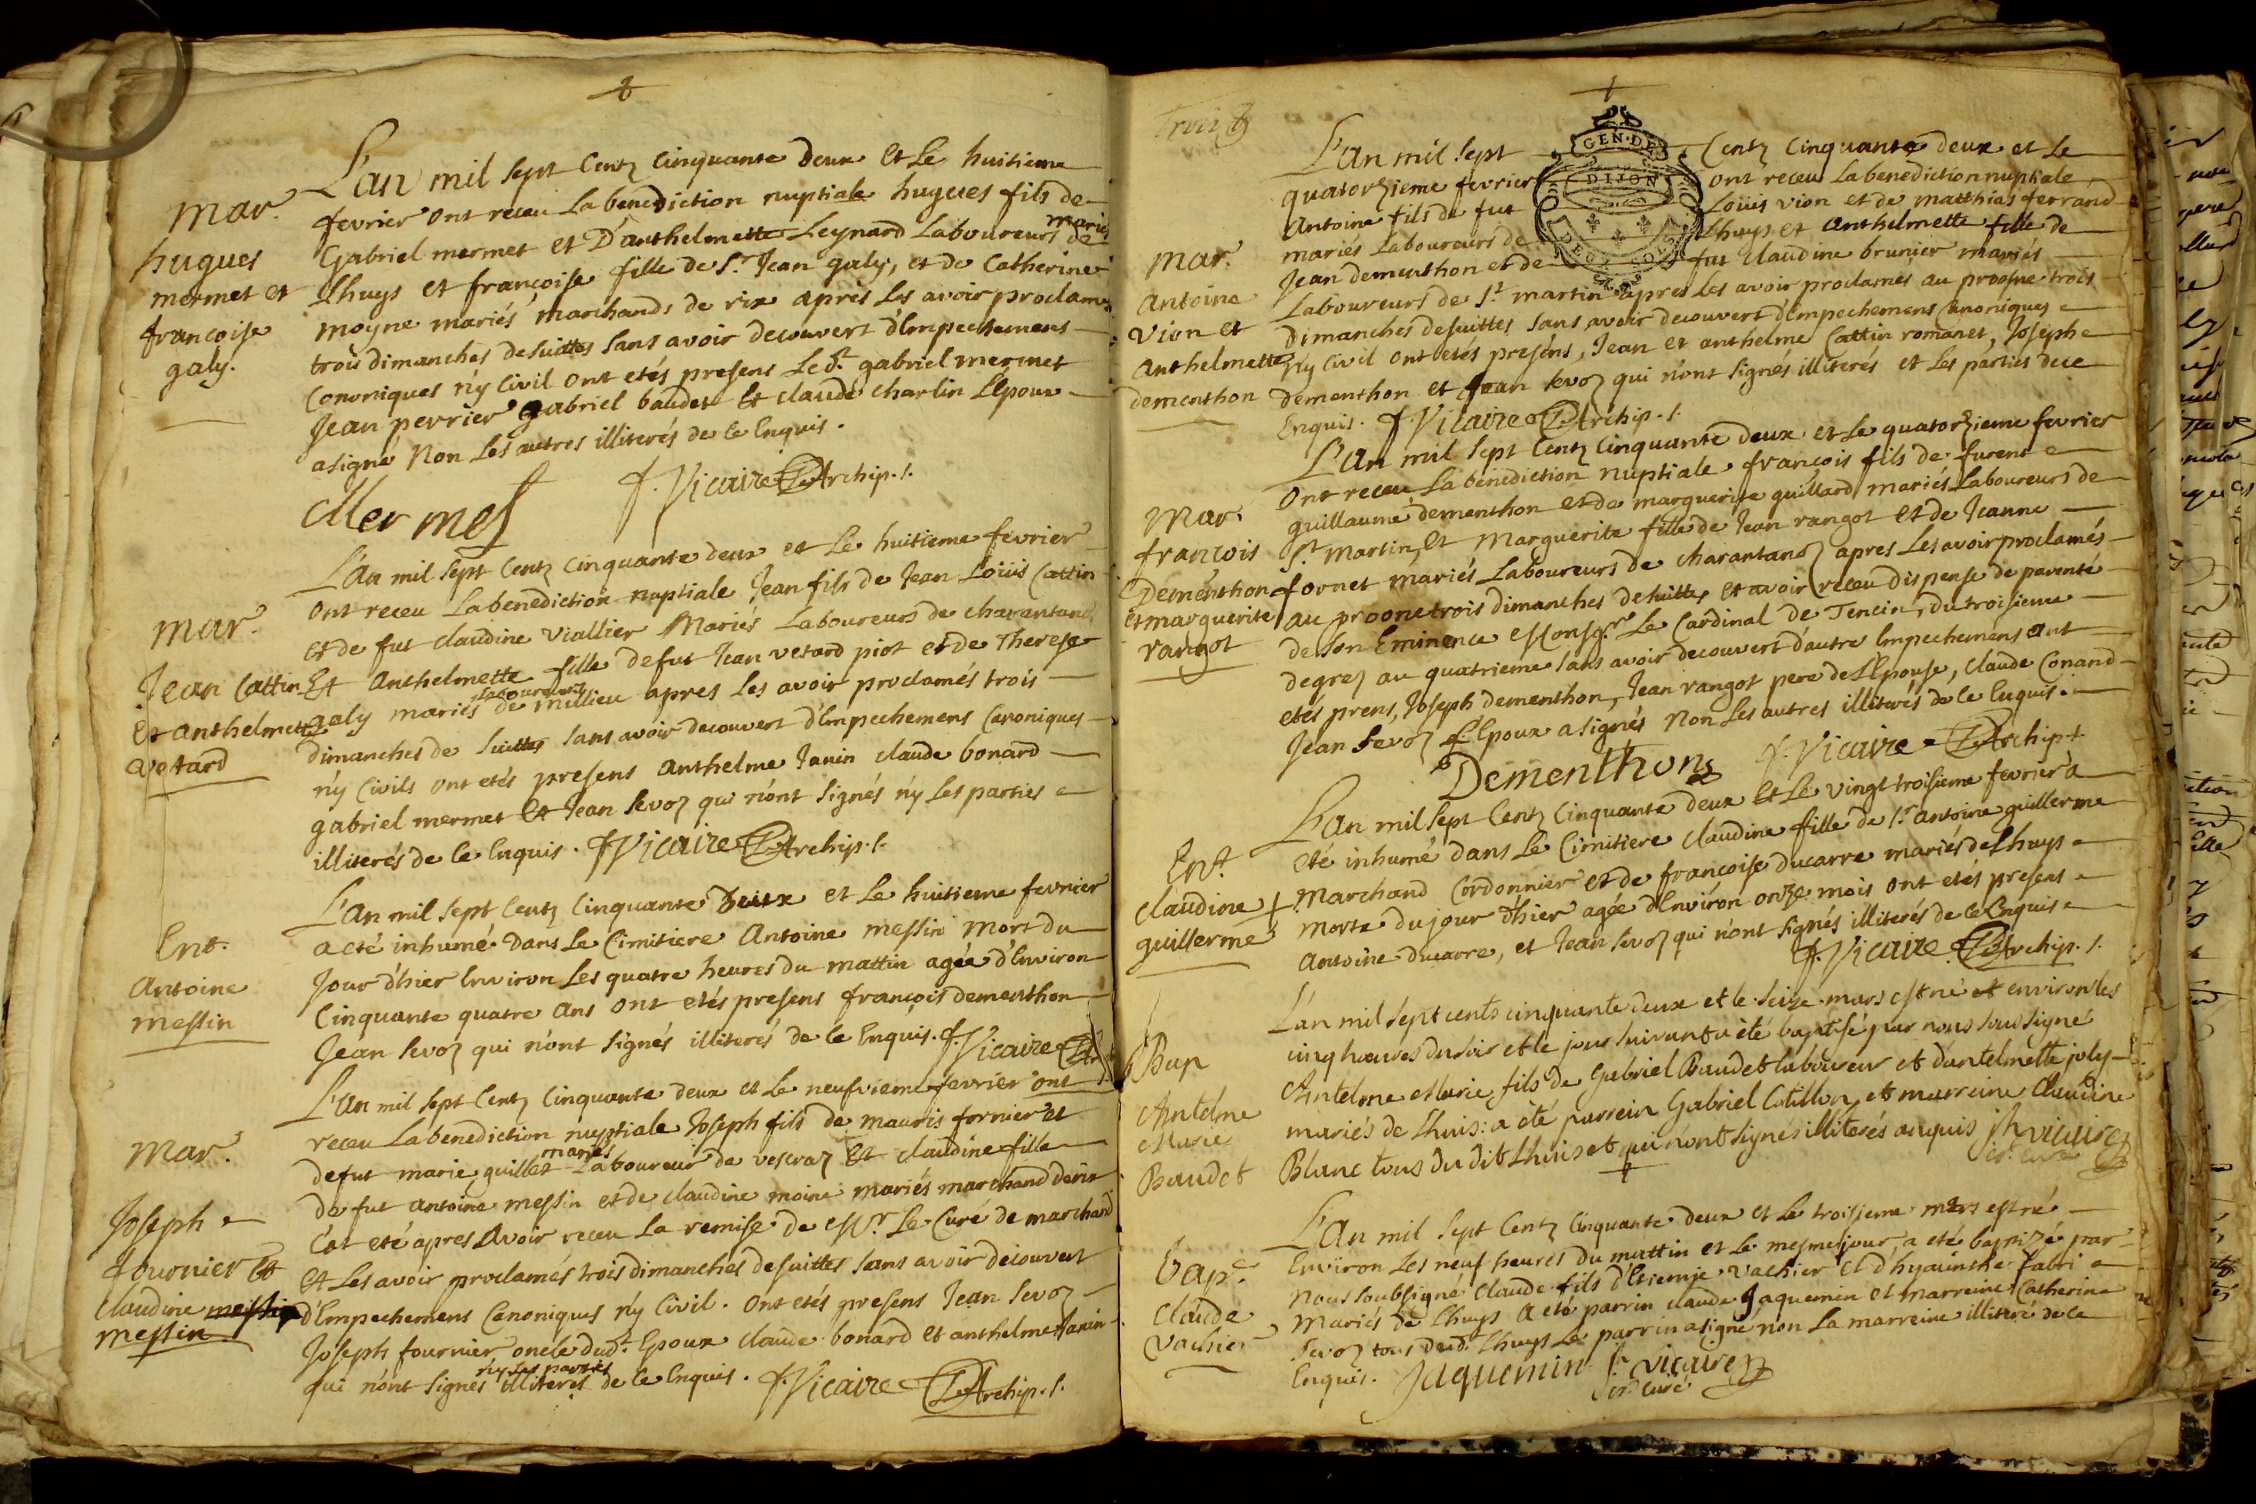 L'an mil sept Centz Cinquante deux et Le huitieme
fevrier ont receu La benediction nuptiale hugues fils de
Gabriel mermet et D'anthelmette Leynard Laboureurs mariés de
Lhuys et françoise fille de Sr. Jean galy, et de Catherine
moyne mariés marchands de rix apres Les avoir proclamés
trois dimanches desuittes sans avoir decouvert d'Empechemens
Cononiques n'y Civil ont etés presens Le dt. gabriel mermet
Jean pervrier gabriel baudet et claude charlin L'Epoux
a signé Non Les autres illiterés de ce Enquis.
Mermet
f. Vicaire Archip.
mar.
hugues
mermet et
francoise
galy.
L'an mil sept Centz Cinquante deux et Le huitieme fevrier
ont receu La benediction nuptiale Jean fils de Jean Loüis Cattin
et de fut claudine viallier Mariés Laboureurs de charantanoz
Et Anthelmette fille de fut Jean vetard piot et de Therese
galy mariés Laboureurs de millieu apres Les avoir proclamés trois
dimanches de suittes sans avoir decouvert d'Empechemens Canoniques
n'y Civils ont etés presens Anthelme Janin claude bonard
gabriel mermet et Jean Sevoz qui n'ont signés n'y Les parties
illiterés de ce Enquis. f. Vicaire Archip.
mar.
Jean Cattin
Et anthelmette
vetard
L'an mil sept Centz Cinquante Deux et Le huitieme fevrier
a eté inhumé dans Le Cimitiere Antoine messin mort du
Jour d'hier Environ Les quatre heures du mattin agée d'Environ
Cinquante quatre Ans ont etés presens françois dementhon
Jean Sevoz qui n'ont signés illiterés de ce Enquis. f. Vicaire
Ent.
Antoine
messin
L'an mil sept Centz Cinquante deux et Le neufvieme fevrier ont
receu La benediction nuptiale Joseph fils de mauris fornier et
defut marie guillet mariés Laboureur de vescraz Et claudine fille
de fut antoine messin et de claudine moine mariés marchand de rix
C'at eté apres Avoir receu La remise de Mr. Le Curé de marchand
et Les avoir proclamés trois dimanches desuittes sans avoir decouvert
d'Empechemens Canoniques n'y Civil. ont etés presens Jean Sevoz
Joseph fournier oncle dud. Epoux claude bonard et anthelme Janin
qui n'ont signés n'y Les parties illiterés de ce Enquis. f. Vicaire Archip.
mar.
Joseph
fournier et
Claudine
messin
trois
GEN. DE
DIJON
L'an mil sept Centz Cinquante deux et Le
quatorzieme fevrier ont receu La benediction nuptiale
Antoine fils de fut Loüis vion et de matthias ferrand
mariés Laboureurs de Lhuys et anthelmette fille de
Jean dementhon et de fut claudine brunier mariés
Laboureurs de St. martin apres Les avoir proclamés au proosne trois
Dimanches desuittes sans avoir decouvert d'Empechemens Canoniques
n'y Civil ont etés presens, Jean et anthelme Cattin romanet, Joseph
dementhon et Jean Sevoz qui n'ont signés illiterés et Les parties de ce
Enquis. f. Vicaire Archip.
mar.
antoine
vion et
anthelmette
dementhon
L'an mil sept Centz Cinquante deux et Le quatorzieme fevrier
ont receu La benediction nuptiale françois fils de furent
guillaume dementhon et de marguerite guillard mariés Laboureurs de
St. Martin, Et Marguerite fille de Jean rangot et de Jeanne
fornet mariés Laboureurs de charantanoz apres Les avoir proclamés
au proone trois dimanches de suittes et avoir receu dispense de parenté
de Son Eminence Monsgr. Le Cardinal de Tencin, du troisieme
degrez au quatrieme sans avoir decouvert d'autre Empechemens ont
etés prens, Joseph dementhon, Jean rangot pere de L'Epouse, claude Conand
Jean Sevoz L'Epoux a signés Non Les autres illiterés de ce Enquis.
Dementhon f. Vicaire Archip.
mar.
françois
Dementhon
et marguerite
rangot
L'an mil sept Centz Cinquante deux et Le vingt troisieme fevrier a
eté inhumé dans Le Cimitiere claudine fille de Sr. antoine guillerme
Marchand Cordonnier et de françoise ducarre mariés de Lhuys
morte du jour d'hier agée d'Environ onze mois ont etés presens
antoine ducarre, et Jean Sevoz qui n'ont signés illiterés de ce Enquis
f. Vicaire Archip.
Ent.
claudine
guillerme
L'an mil sept cents cinquante deux et le seize mars est né et environ les
cinq heures du soir et le jour suivant a été baptisé par nous sous signé
Antelme Marie, fils de Gabriel Baudet laboureur et d'antelmette joly
mariés de Lhuis: a été parrein Gabriel Cotillon, et marreine Claudine
Blanc tous du dit Lhuis et qui n'ont signés illiterés enquis jh vicaire
Bap
Antelme
Marie
Baudet
L'an mil sept Centz Cinquante deux et Le troisieme mars est né
Environ Les neuf heures du mattin et Le mesme jour, a eté baptizé par
Nous soubsigné Claude fils d'Etienne vachier et d'hyacinthe fabri
Mariés de Lhuys a eté parrin claude Jaquemin et marreine Catherine
Sevoz tous dud. Lhuys Le parrin a signé non La marreine illiteré de ce
Enquis. Jaquemin vicaire
Bap.
Claude
Vachier